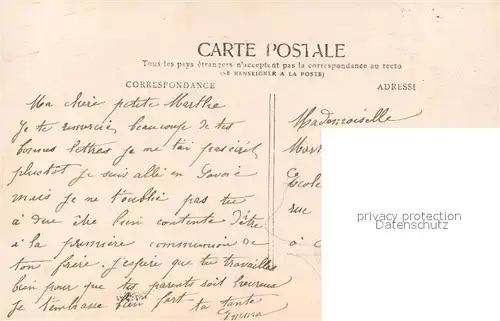 CARTE POSTALE
Tous les pays étrangers n'acceptent pas la correspondance au recto
(SE RENSEIGNER A LA POSTE)
CORRESPONDANCE
ADRESSE
Ma chère petite Marthe
Je te remercie beaucoup de tes
bonnes lettres je ne t'ai pas écrit
plustot je suis allé en Savoie
mais je ne t'oublié pas tu
a due être bien contente d'être
à la première communion de
ton frère. j'espère que tu travailles
bien pour que tes parents soit heureux
je t'embrasse bien fort ta tante
Emma
Mademoiselle
Mar
Ecole
rue
à
privacy protection
Datenschutz